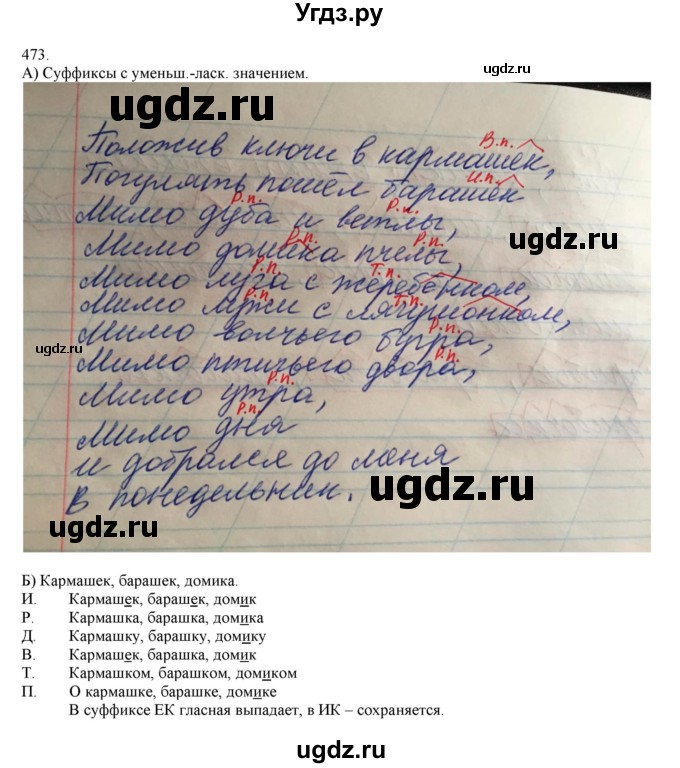 Угдз.ру
473.
А) Суффиксы с уменьш.-ласк. значением.
ugdz.ru
В.п.
Положив ключи в кармашек,
И.п.
Погулять пошёл барашек
Р.п. Р.п.
Мимо дуба и ветлы,
ugdz.ru
Р.п. Р.п.
Мимо домика пчелы,
Р.п. Т.п.
Мимо луга с жеребёнком,
Р.п. Т.п.
Мимо лужи с лягушонком,
ugdz.ru
Р.п.
Мимо волчьего бугра,
Р.п.
Мимо птичьего двора,
Р.п.
Мимо утра,
Р.п.
Мимо дня
и добрался до меня
ugdz.ru
в понедельник.
ugdz.ru
Б) Кармашек, барашек, домика.
И. Кармашек, барашек, домик
Р. Кармашка, барашка, домика
Д. Кармашку, барашку, домику
В. Кармашек, барашка, домик
Т. Кармашком, барашком, домиком
П. О кармашке, барашке, домике
В суффиксе ЕК гласная выпадает, в ИК – сохраняется.
ugdz.ru